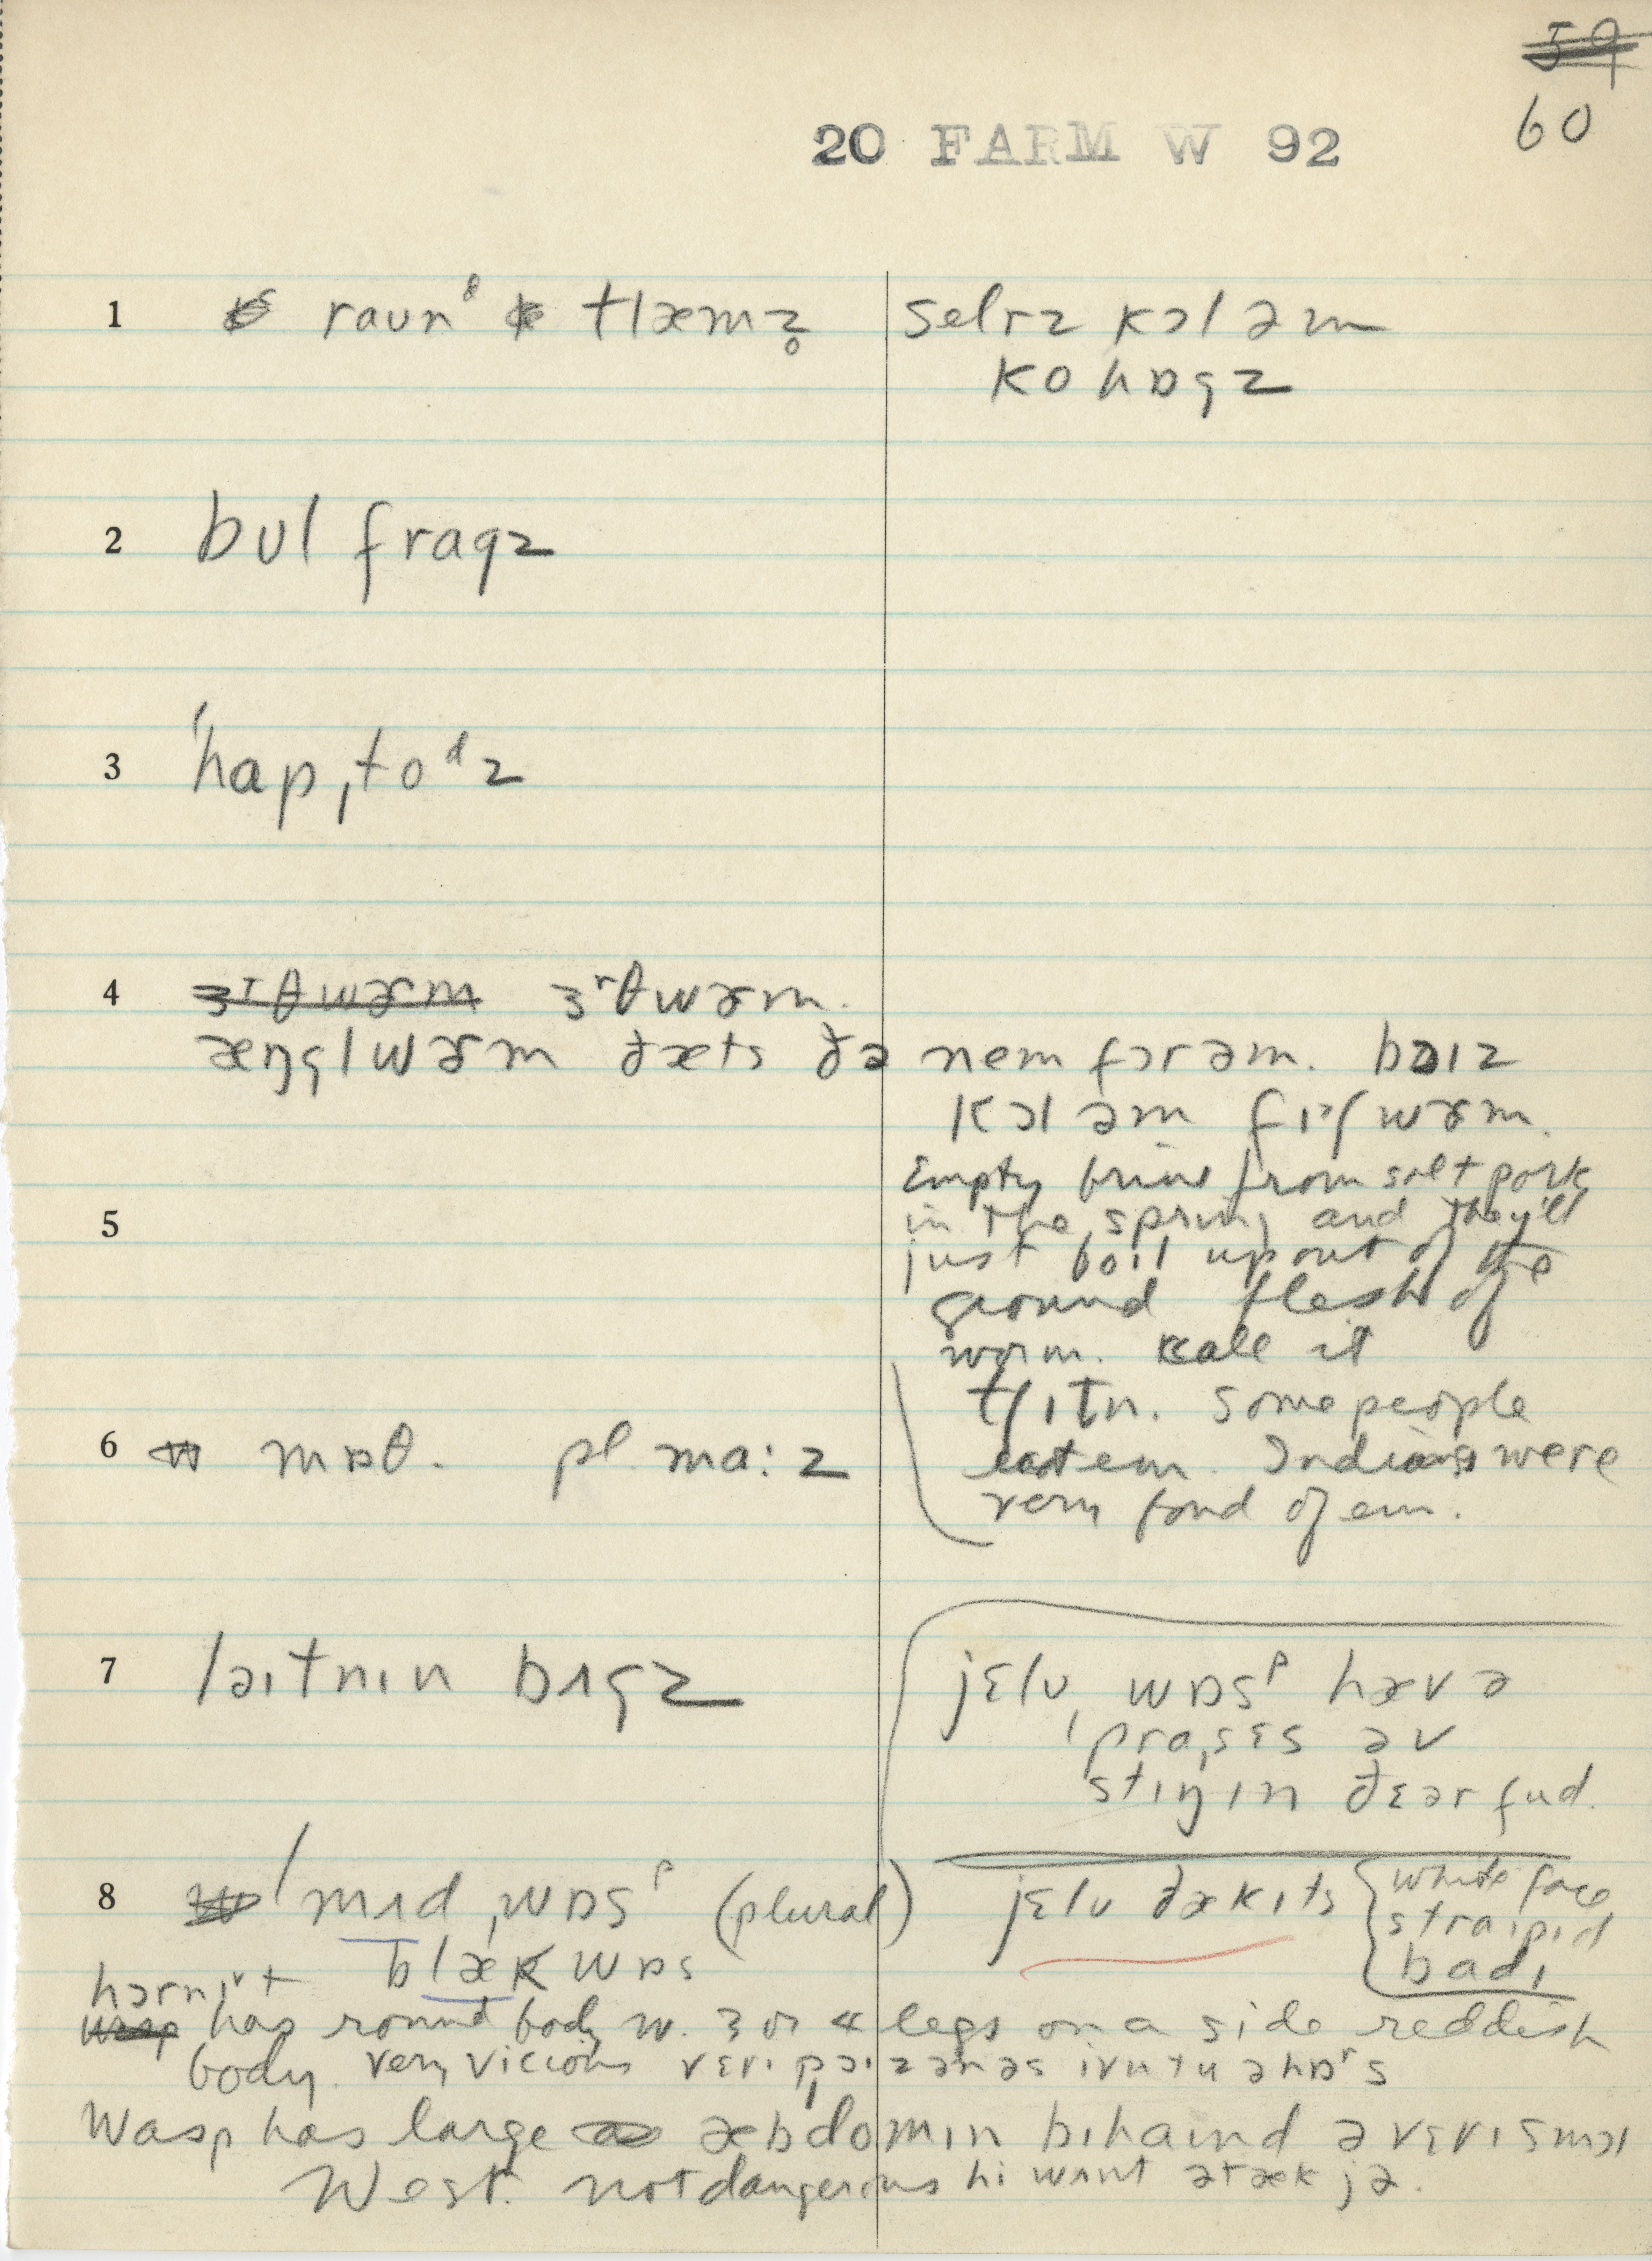 59
60
20 FARM W 92
1 raunᵈ klæmz̥ | selrz kɔl əm
ko hɒgz
2 bʊl fragz
3 ˈhapˌtoᵈz
4 ɜʳθwɚm ɜʳθwɚm.
æŋglwɚm ðæts ðə nem fɔr əm. bɔɪz
kɔl əm fɪʃwɚm.
Empty brine from salt pork
5 in the spring and they'll
just boil up out of the
ground flesh of
worm. call it
tʃɪtn. Some people
6 mɒθ. pl. ma:z eat em. Indians were
very fond of em.
7 laɪtnɪn bʌgz
jɛlʊ wɒsᵖ hæv ə
prasɛs əv
stɪŋɪn ðɛər fud.
8 ˈmʌdˌwɒsᵖ (plural) jɛlʊ dʒækɪts
white face
straɪpɪd
badɪ
blæk wɒs
hɔrnɪt
wasp has round body w. 3 or 4 legs on a side reddish
body. very vicious vɛrɪ pɔɪzənəs ivn tu ə hɒʳs
Wasp has large æbdomɪn bɪhaɪnd ə vɛrɪ smɔl
West. not dangerous hi wʌnt ətæk jə.